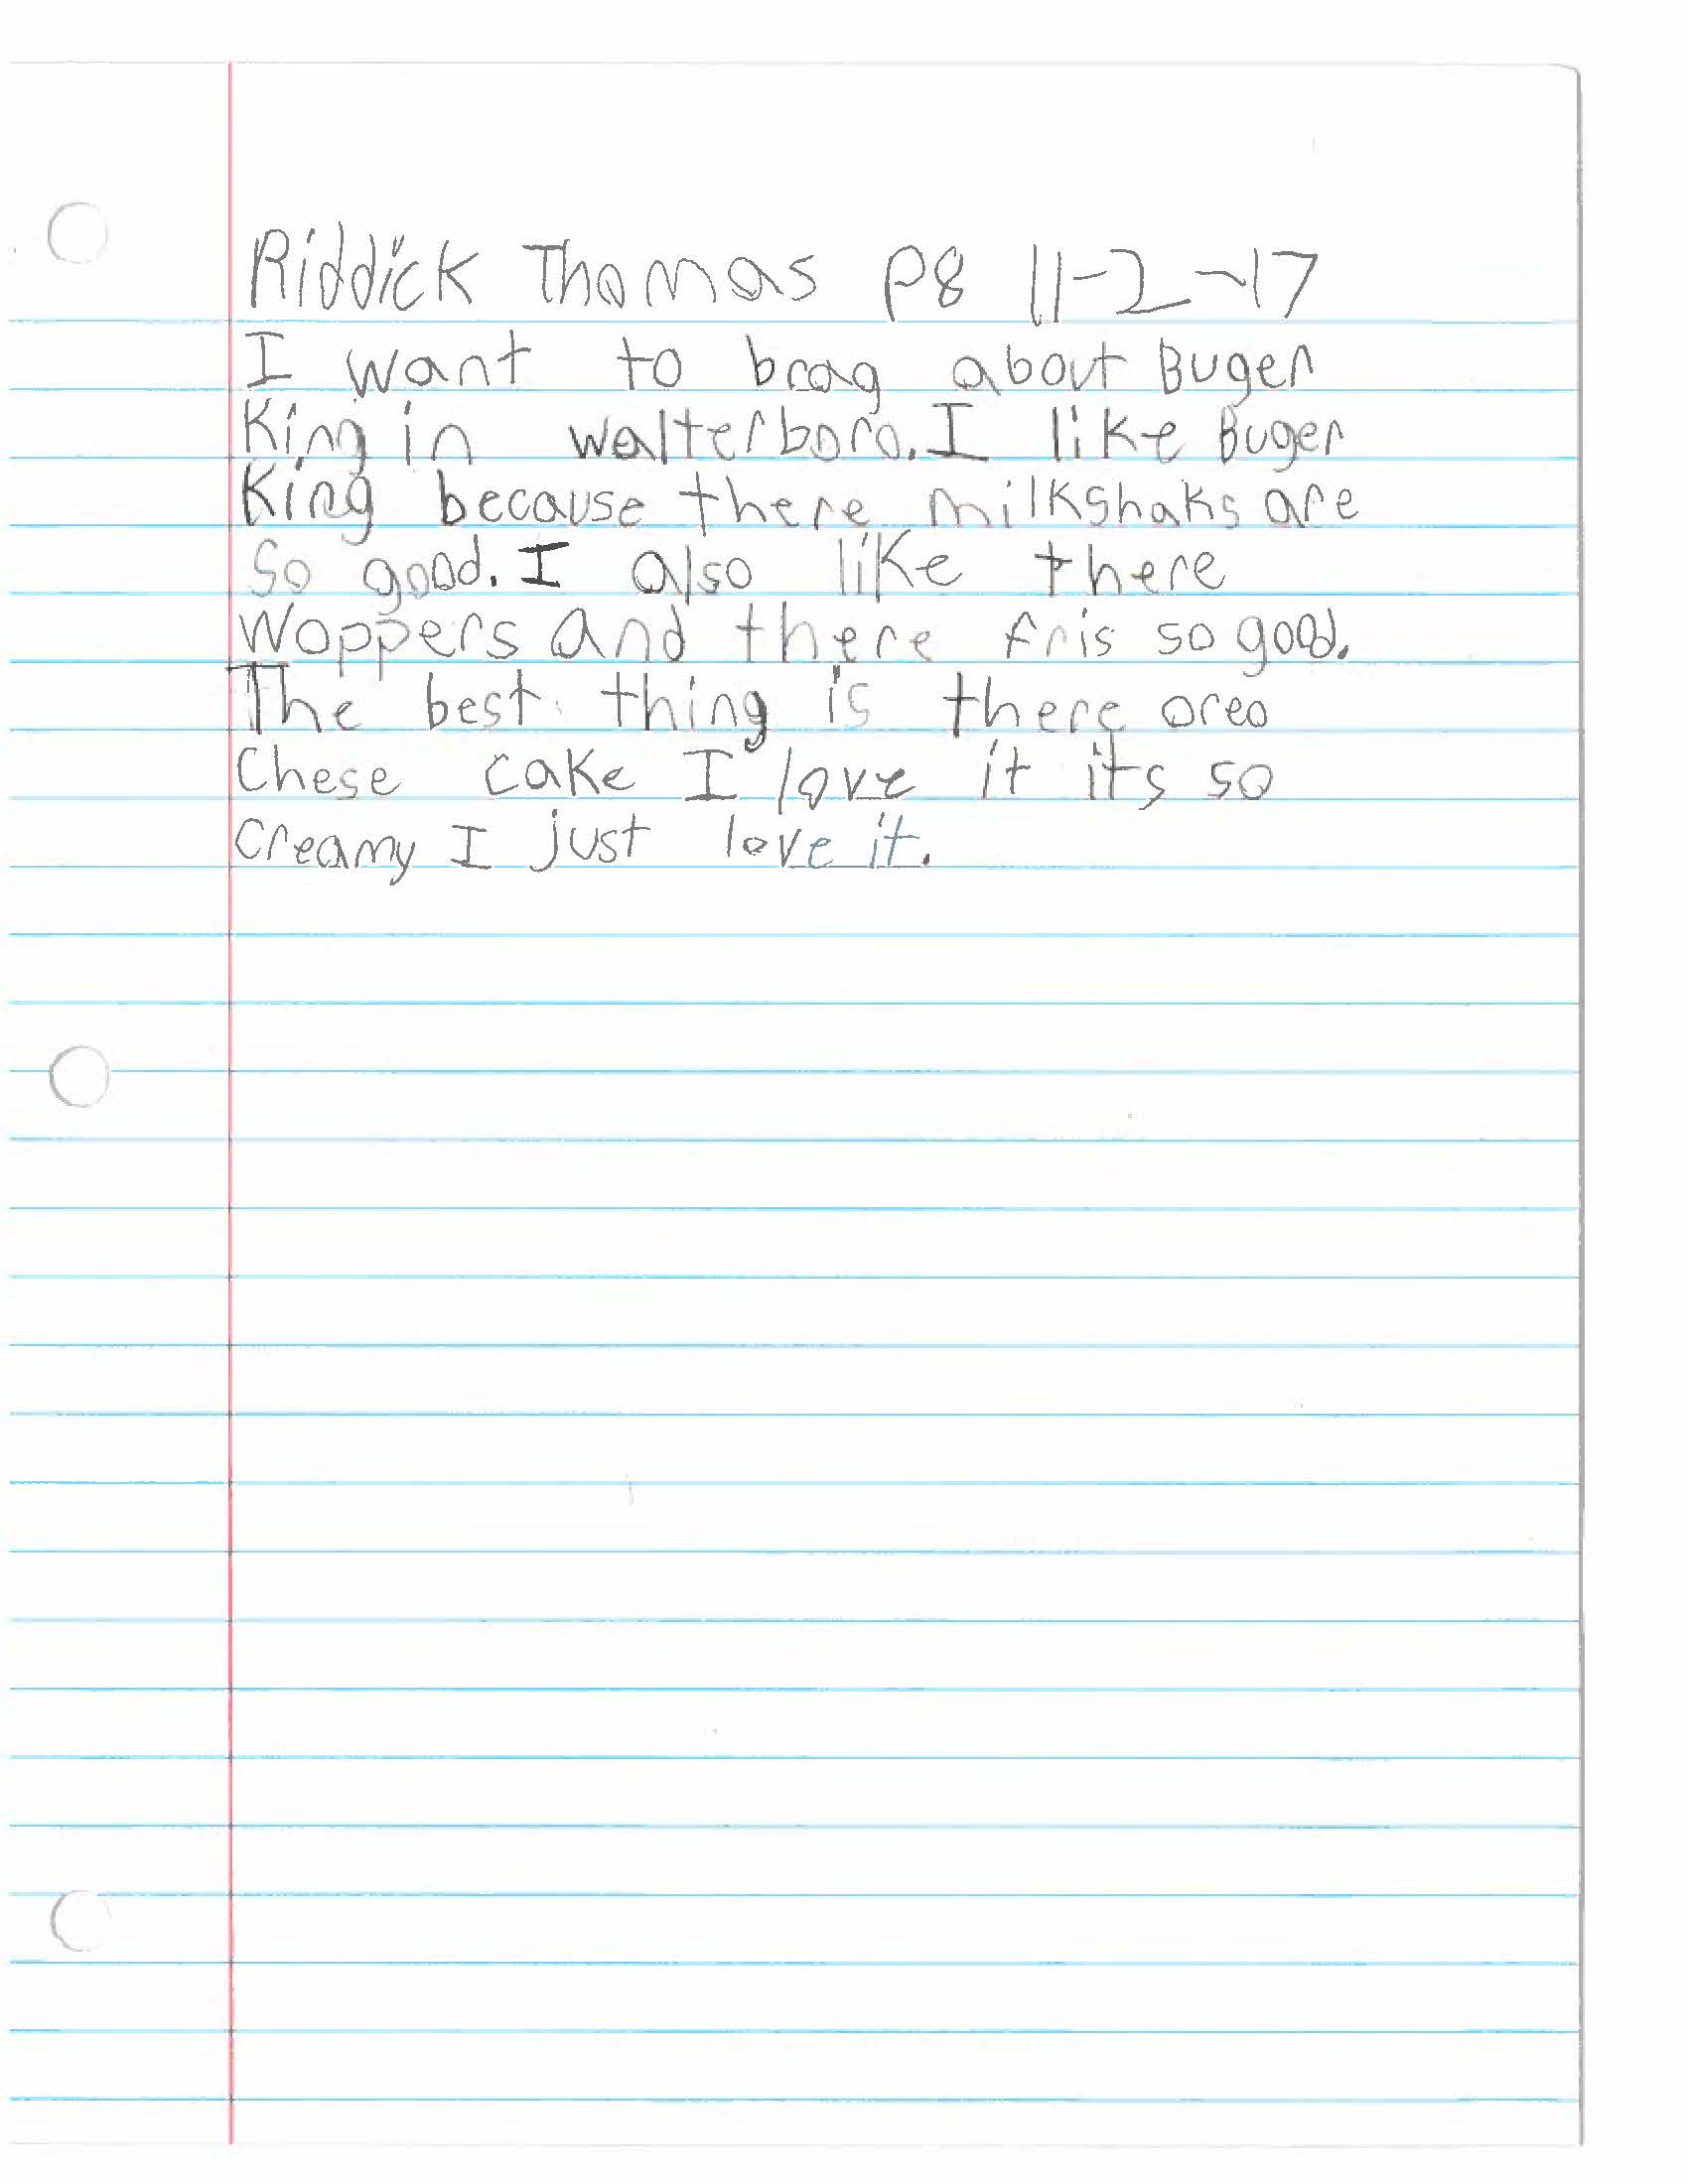 Riddick Thomas P8 11-2-17
I want to brag about Buger
King in walterboro. I like Buger
King because there milkshaks are
so good. I also like there
Woppers and there fris so good.
The best thing is there oreo
Chese cake I love it its so
creamy I just love it.